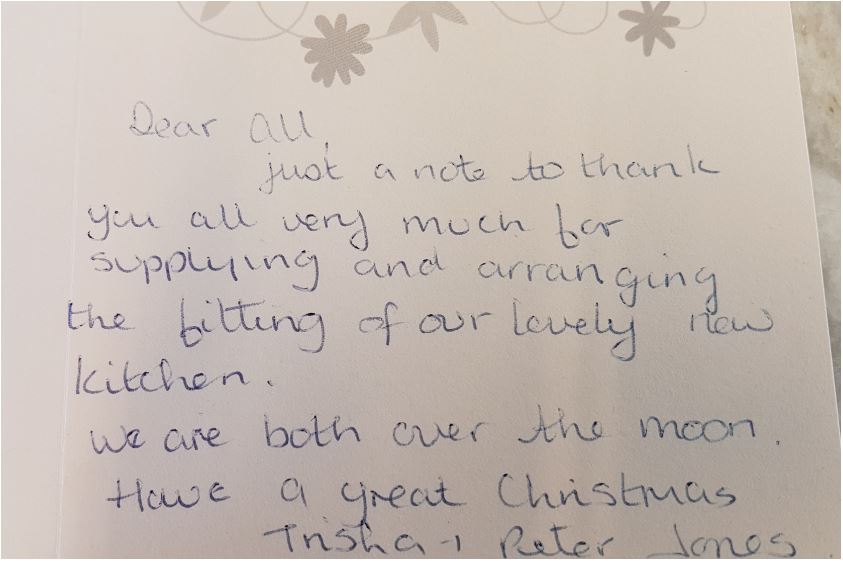 Dear All,
just a note to thank
you all very much for
supplying and arranging
the fitting of our lovely new
kitchen.
We are both over the moon.
Have a great Christmas
Trisha + Peter Jones.